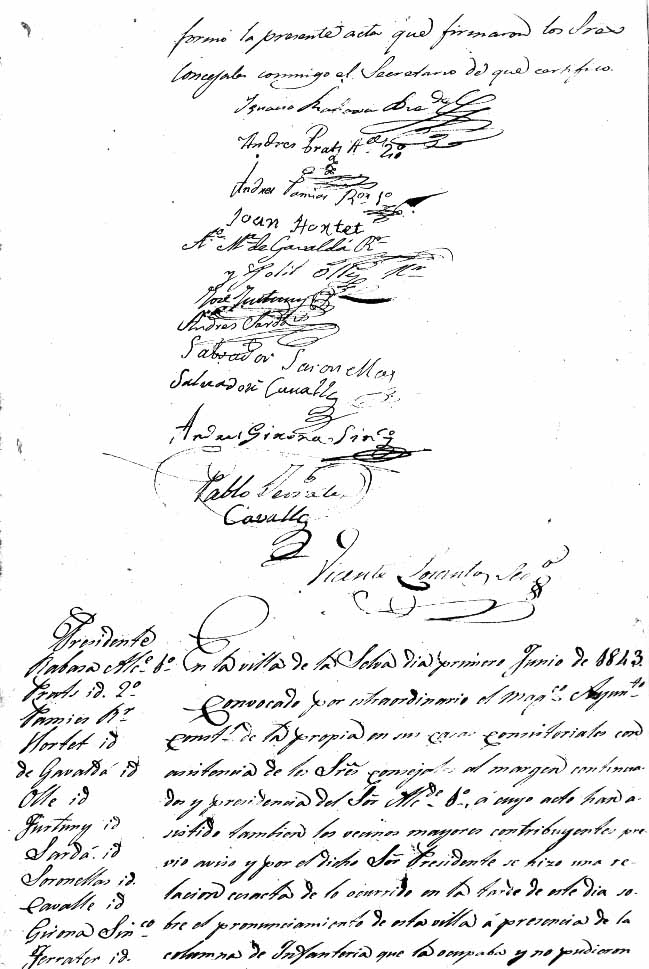 formó la presente acta que firmaron los Sres
Concejales conmigo el Secretario de que certifico.
Ignacio Rabasa
Andres Prats A.e 2º
Andres Pamies R.or 1º
Joan Hortet
A.º M.ª de Gavaldá R.or
y Folil Olle R.or
José Furtuny
Andres Sardá
Salvador Soronellas
Salvador Cavallé
Andres Girona Sinco
Pablo Ferrater
Cavallé
Vicente Lorenlo, Sec.º
Presidente
Rabasa Alc.e 1º
Prats id. 2º
Pamies R.r
Hortet id
de Gavaldá id
Olle id
Furtuny id
Sardá id
Soronellas id.
Cavallé id
Girona Sin.co
Ferrater id.
En la villa de la Selva dia primero Junio de 1843.
Convocado por estraordinario el Mag.co Ayun.to
Const.l de la propia en sus casas consistoriales con
asistencia de los Sres consejales al margen continua-
dos y presidencia del Sor Alc.de 1º, á cuyo acto han a-
sistido tambien los vecinos mayores contribuyentes pre-
vio aviso y por el dicho Sor Presidente se hizo una re-
lacion esacta de lo ocurrido en la tarde de este dia so-
bre el pronunciamiento de esta villa á presencia de la
columna de Infanteria que la ocupaba y no pudieron